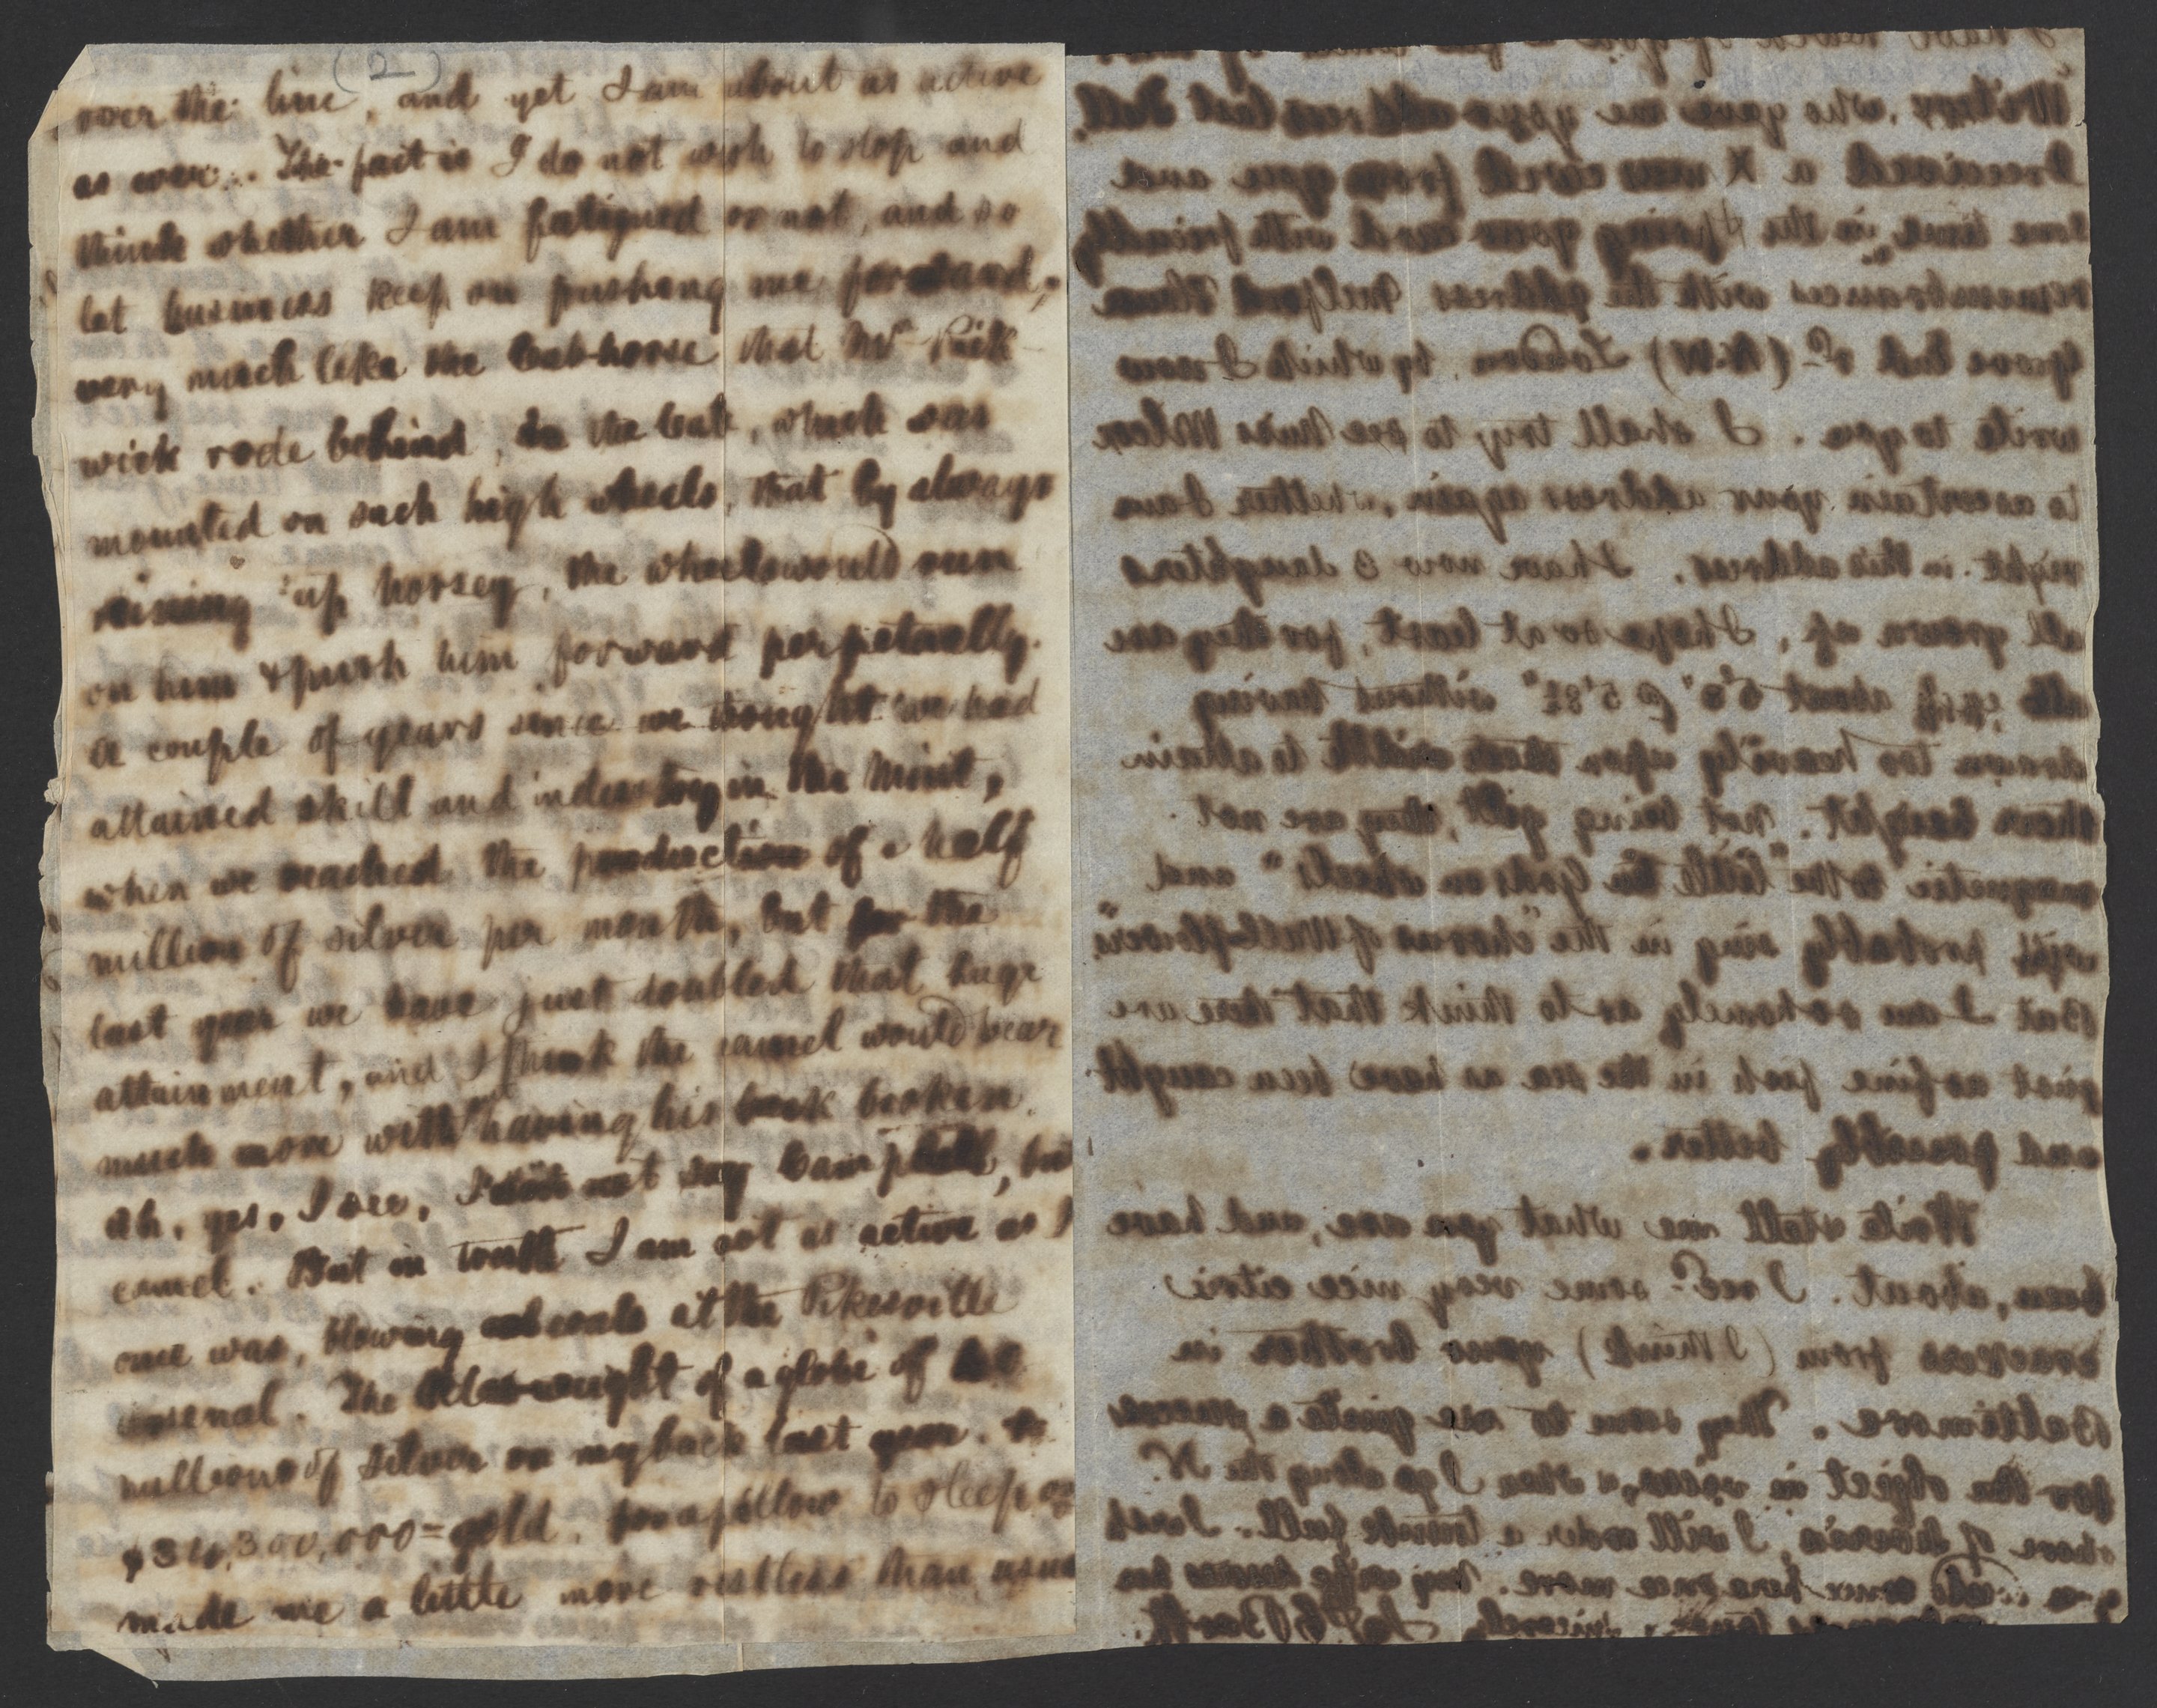 (2)
over the line, and yet I am about as active
as ever. The fact is I do not wish to stop and
think whether I am fatigued or not, and so
let business keep on pushing me forward,
very much like the cab-horse that Mr. Pick-
wick rode behind, in the cab, which was
mounted on such high wheels, that by always
reining up horsey, the wheels would run
on him & push him forward perpetually.
A couple of years since we thought we had
attained skill and industry in the Mint,
when we reached the production of a half
million of silver per month, but for the
last year we have just doubled that huge
attainment, and I think the camel would bear
much more without having his back broken.
Ah, yes, I see, I did not say Campbell, but
camel. But in truth I am not as active as I
once was, blowing coals at the Pikesville
arsenal. The weight of a globe of
millions of silver on my back last year.
300,000= gold, for a pillow to sleep on
made me a little more restless than usu
who gave me your address last Fall.
I received a X mas card from you and
some time in the Spring your card with friendly
remembrances with the address Place
Grove End Rd (N.W) London, by which I now
write to you. I shall try to see Miss
to ascertain your address again, whether I am
right in this address. I have now 3 daughters
all grown up, I hope so at least, for they are
all about 5'6" @ 5'8½" without having
drawn too heavily upon their width to attain
their height. Not being gilt, they are not
magnetic to the "little tin Gods on wheels" and
will probably sing in the "chorus of Wall-flowers".
But I am so homely as to think that there are
just as fine fish in the sea as have been caught
and possibly better.
Write & tell me what you are, and have
been, about. I recd. some very nice citric
crackers from (I think) your brother in
Baltimore. They seem to me quite a
for the object in view, & when I go along the N.
shore of Siberia I will order a trunk full.
come here once more. My wife
sincerely, Booth.